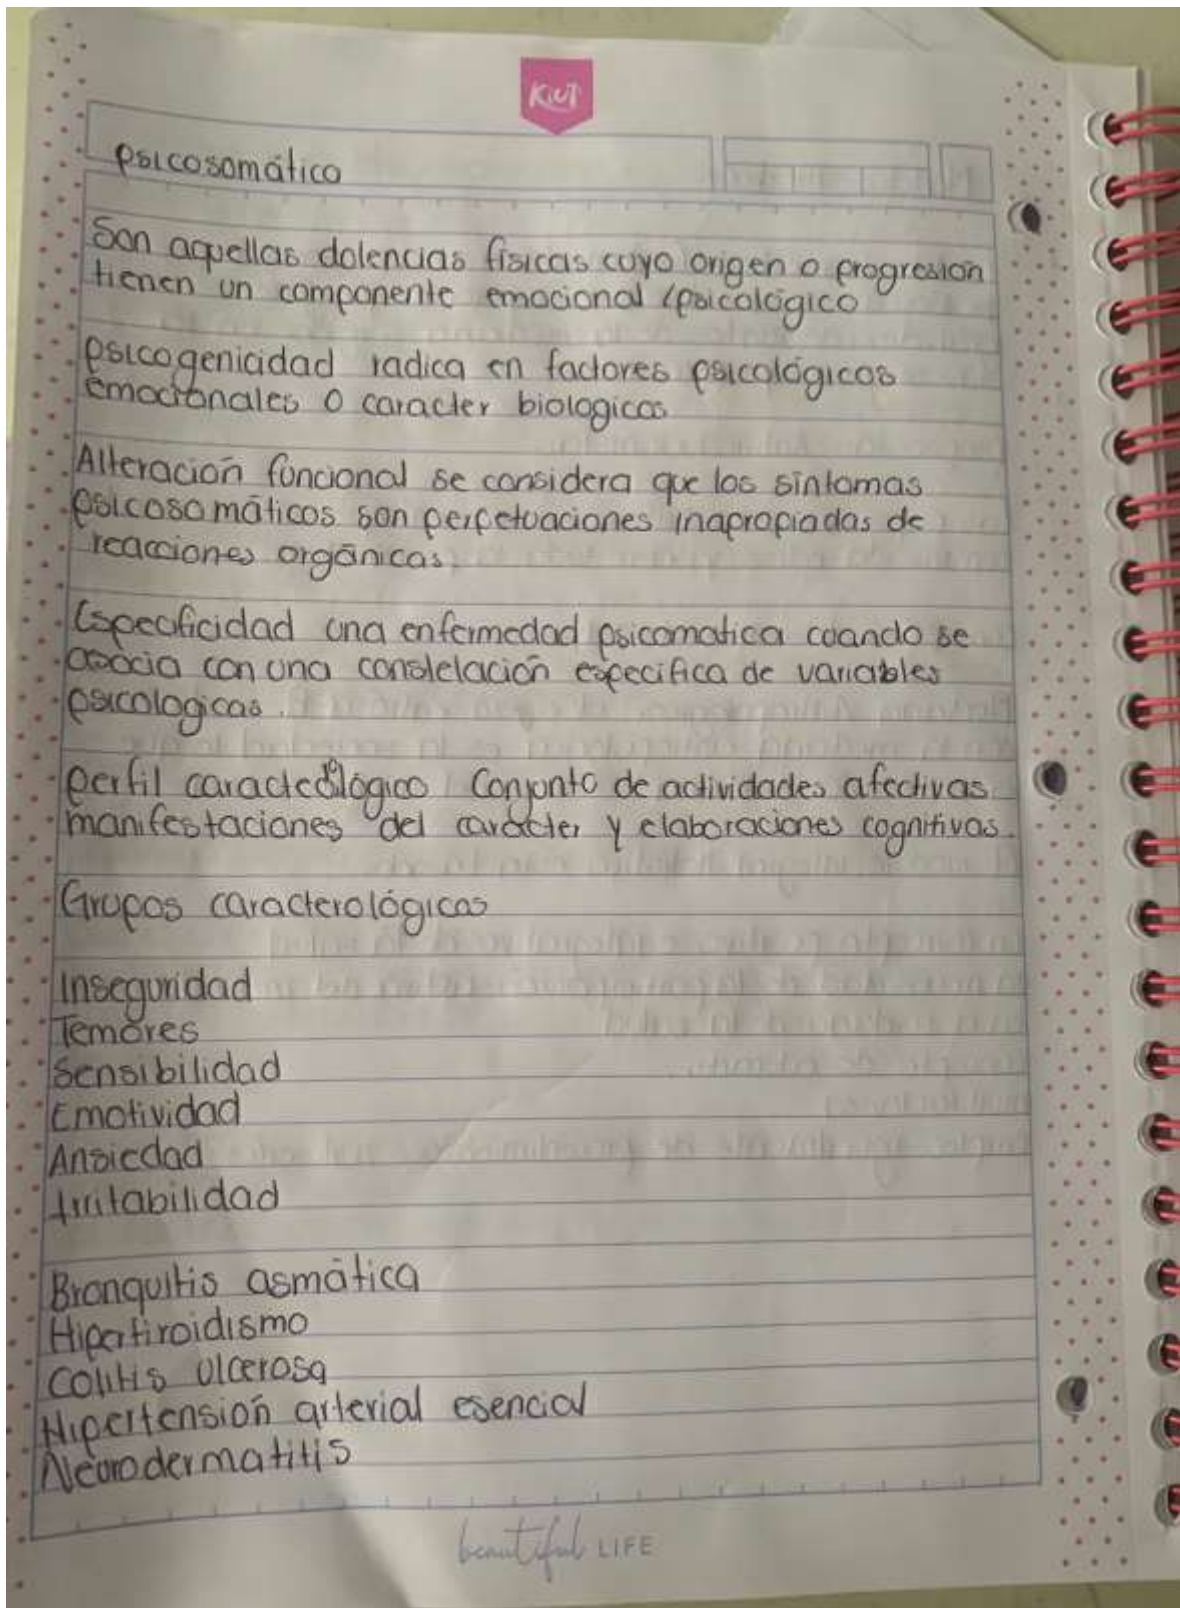 KIUT
psicosomático
Son aquellas dolencias físicas cuyo origen o progresión
tienen un componente emocional /psicológico
psicogenicidad radica en factores psicológicos
emocionales o caracter biologicos
Alteración funcional se considera que los síntomas
psicosomáticos son perpetuaciones inapropiadas de
reacciones orgánicas.
Especificidad una enfermedad psicomatica cuando se
asocia con una constelación especifica de variables
psicologicas.
perfil caracterológico Conjunto de actividades afectivas
manifestaciones del carácter y elaboraciones cognitivas.
Grupos caracterológicos
Inseguridad
Temores
Sensibilidad
Emotividad
Ansiedad
Irritabilidad
Bronquitis asmática
Hipertiroidismo
Colitis ulcerosa
Hipertensión arterial esencial
Neurodermatitis
beautiful LIFE